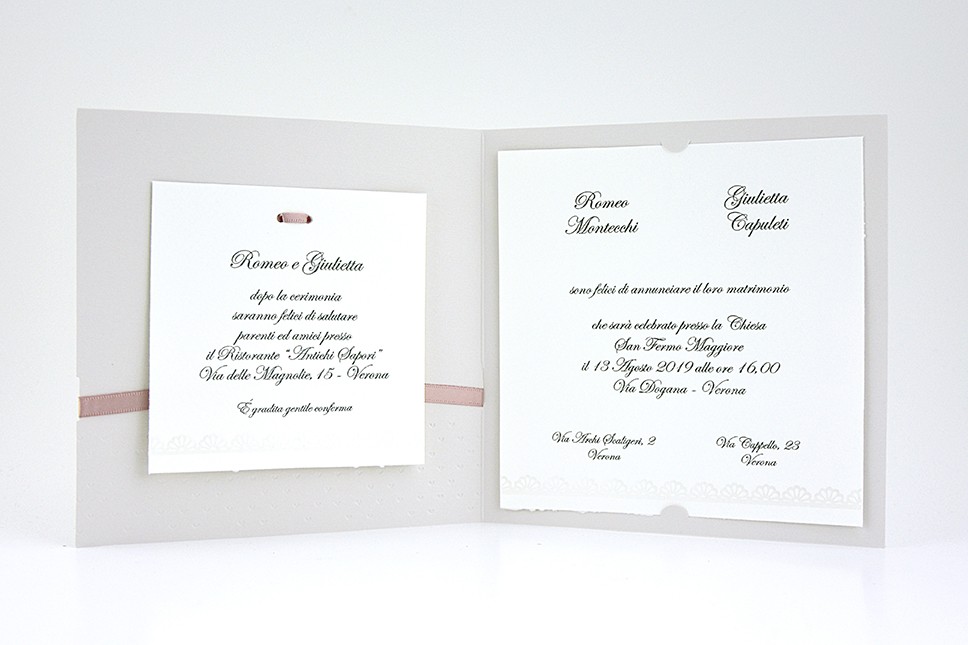 Romeo e Giulietta
dopo la cerimonia
saranno felici di salutare
parenti ed amici presso
il Ristorante "Antichi Sapori"
Via delle Magnolie, 15 - Verona
É gradita gentile conferma
Romeo
Montecchi
Giulietta
Capuleti
sono felici di annunciare il loro matrimonio
che sarà celebrato presso la Chiesa
San Fermo Maggiore
il 13 Agosto 2019 alle ore 16,00
Via Dogana - Verona
Via Archi Scaligeri, 2
Verona
Via Cappello, 23
Verona